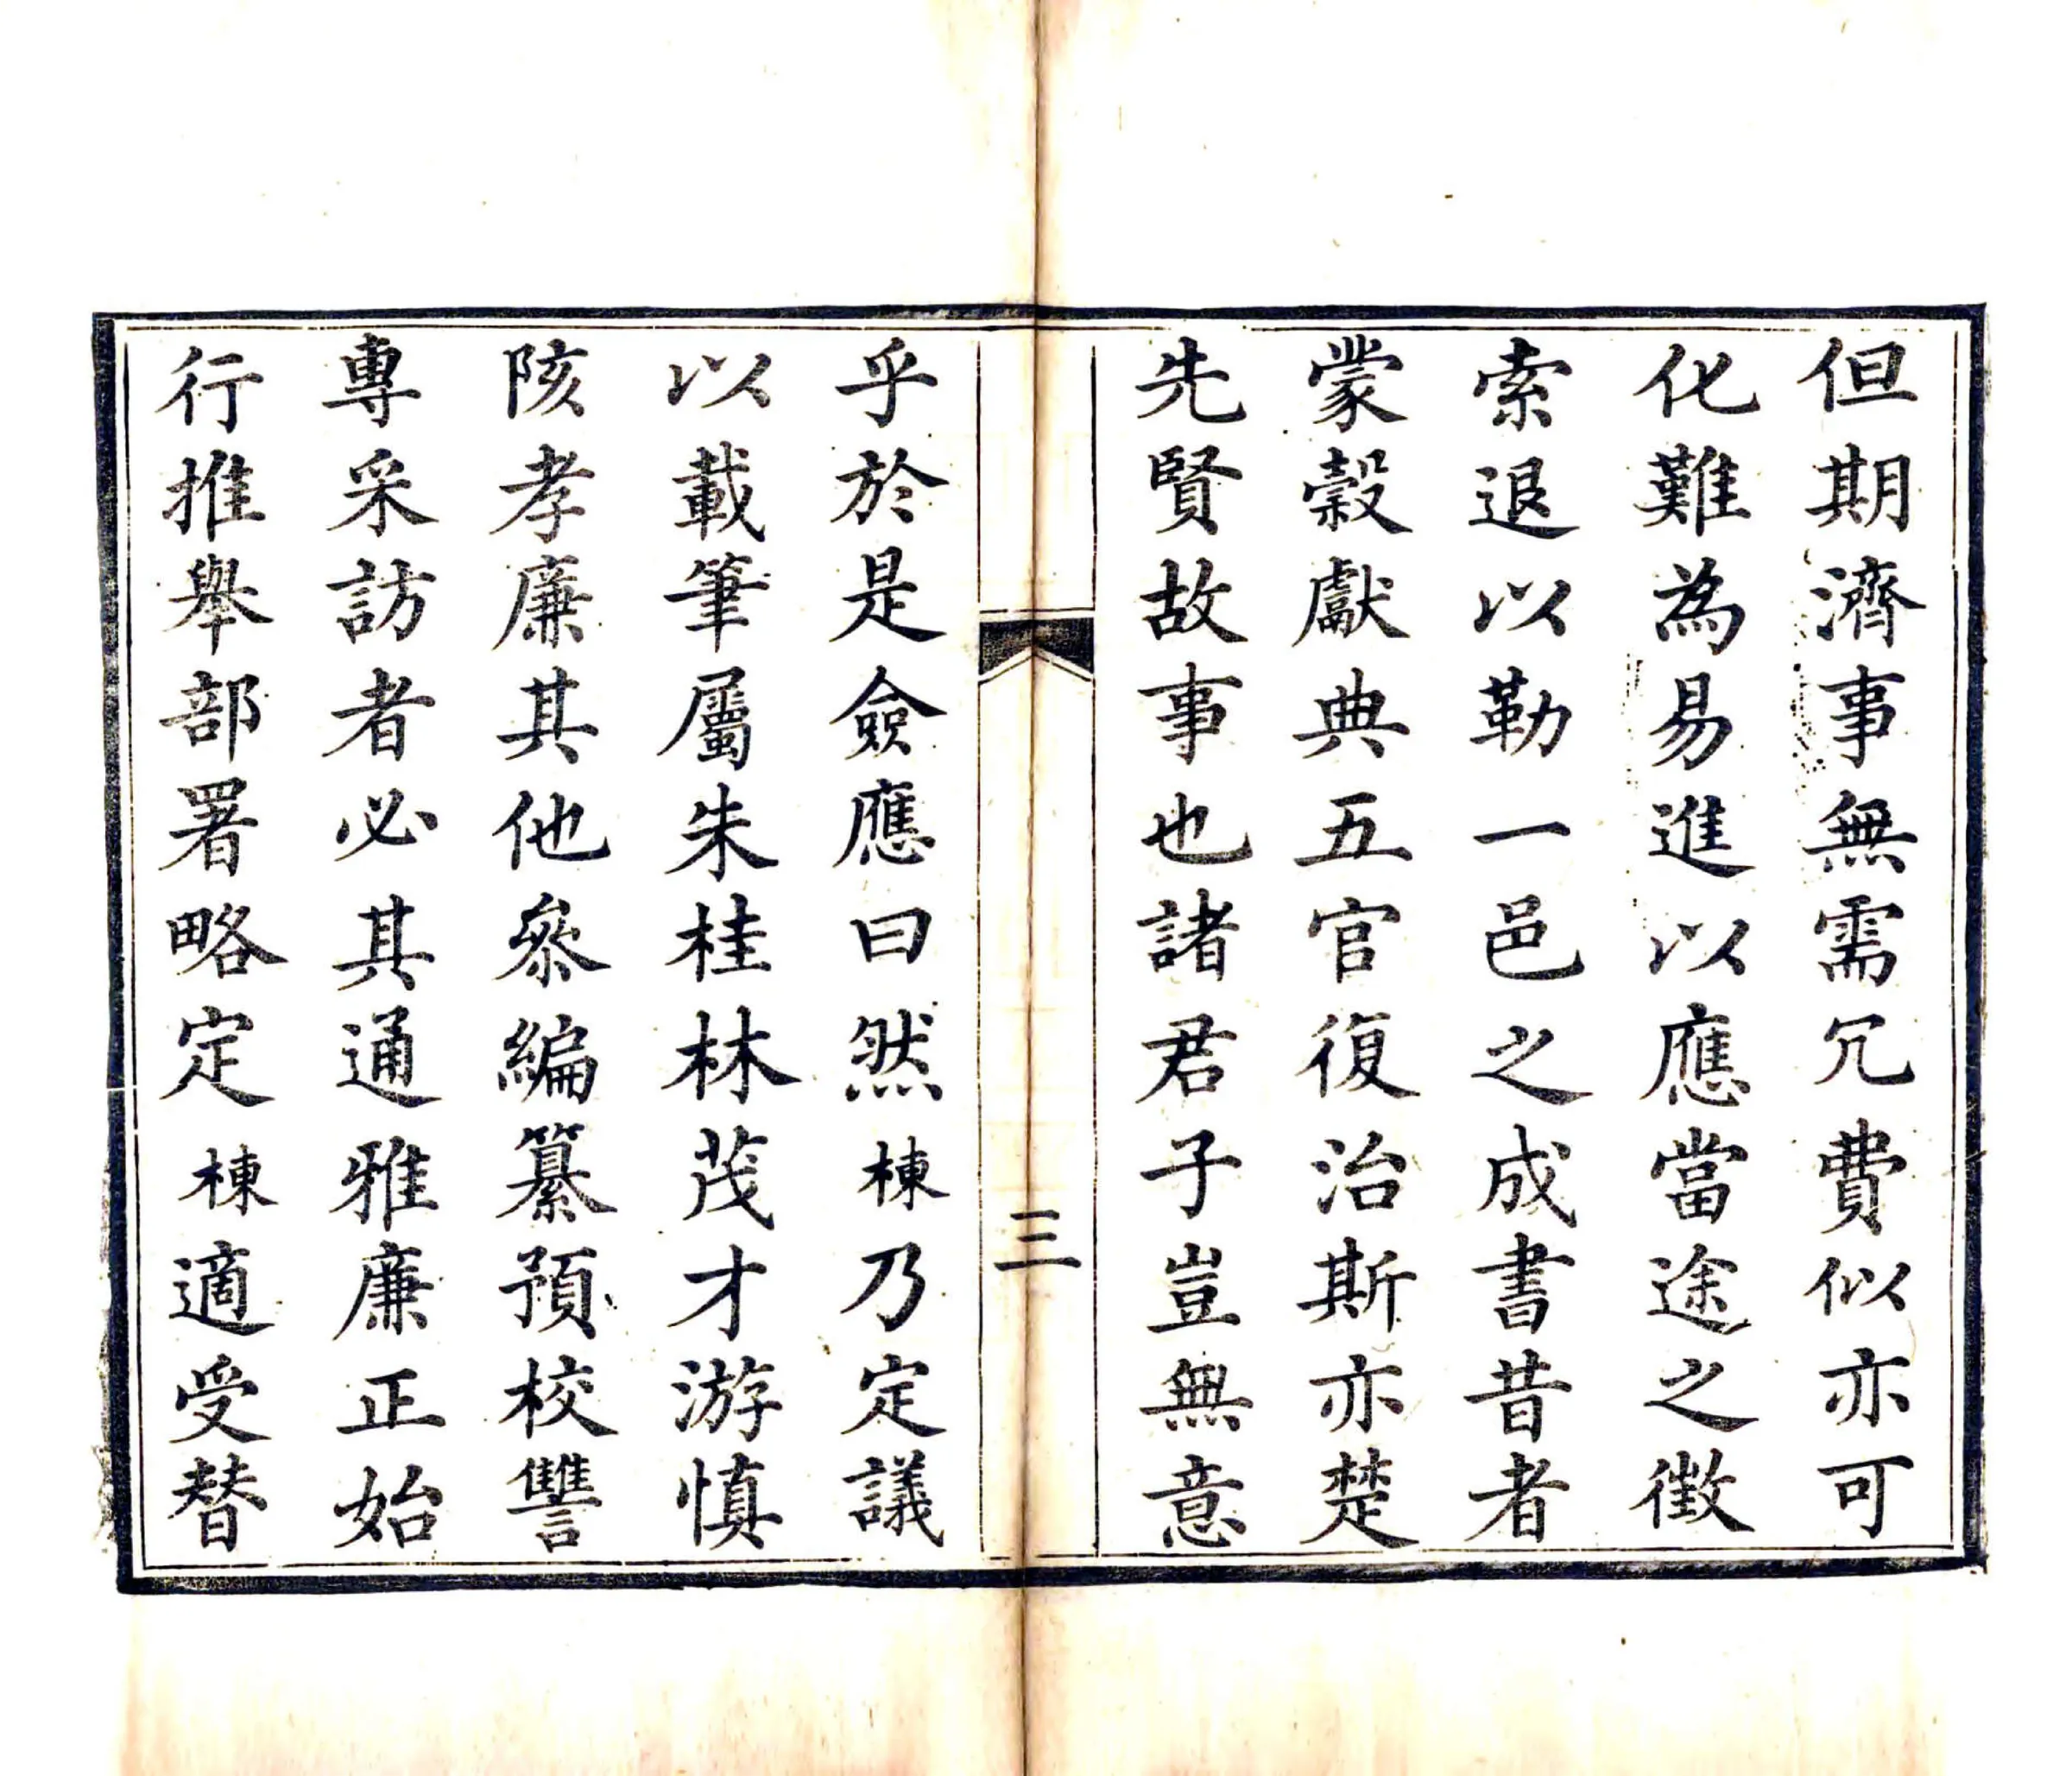 但期濟事無需冗費似亦可
化難為易進以應當途之徵
索退以勒一邑之成書昔者
蒙糓獻典五官復治斯亦楚
先賢故事也諸君子豈無意
三
乎於是僉應曰然棟乃定議
以載筆屬朱桂林茂才游慎
陔孝廉其他叅編纂預校讐
專采訪者必其通雅廉正始
行推舉部署略定棟適受替